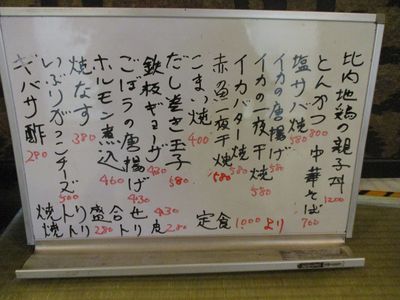 比内地鶏の親子丼 1200
とんかつ 800
中華そば 700
塩サバ焼 580
イカの唐揚げ 580
イカの一夜干焼 580
イカバター焼 580
赤魚一夜干焼 580
こまい焼 400
だし巻き玉子 580
鉄板ギョーザ 430
ごぼうの唐揚げ 430
ホルモン煮込 460
焼なす 380
いぶりガッコチーズ 500
ギバサ酢 280
定食 1000 より
焼トリ盛合せ 430
焼トリ トリ皮 280